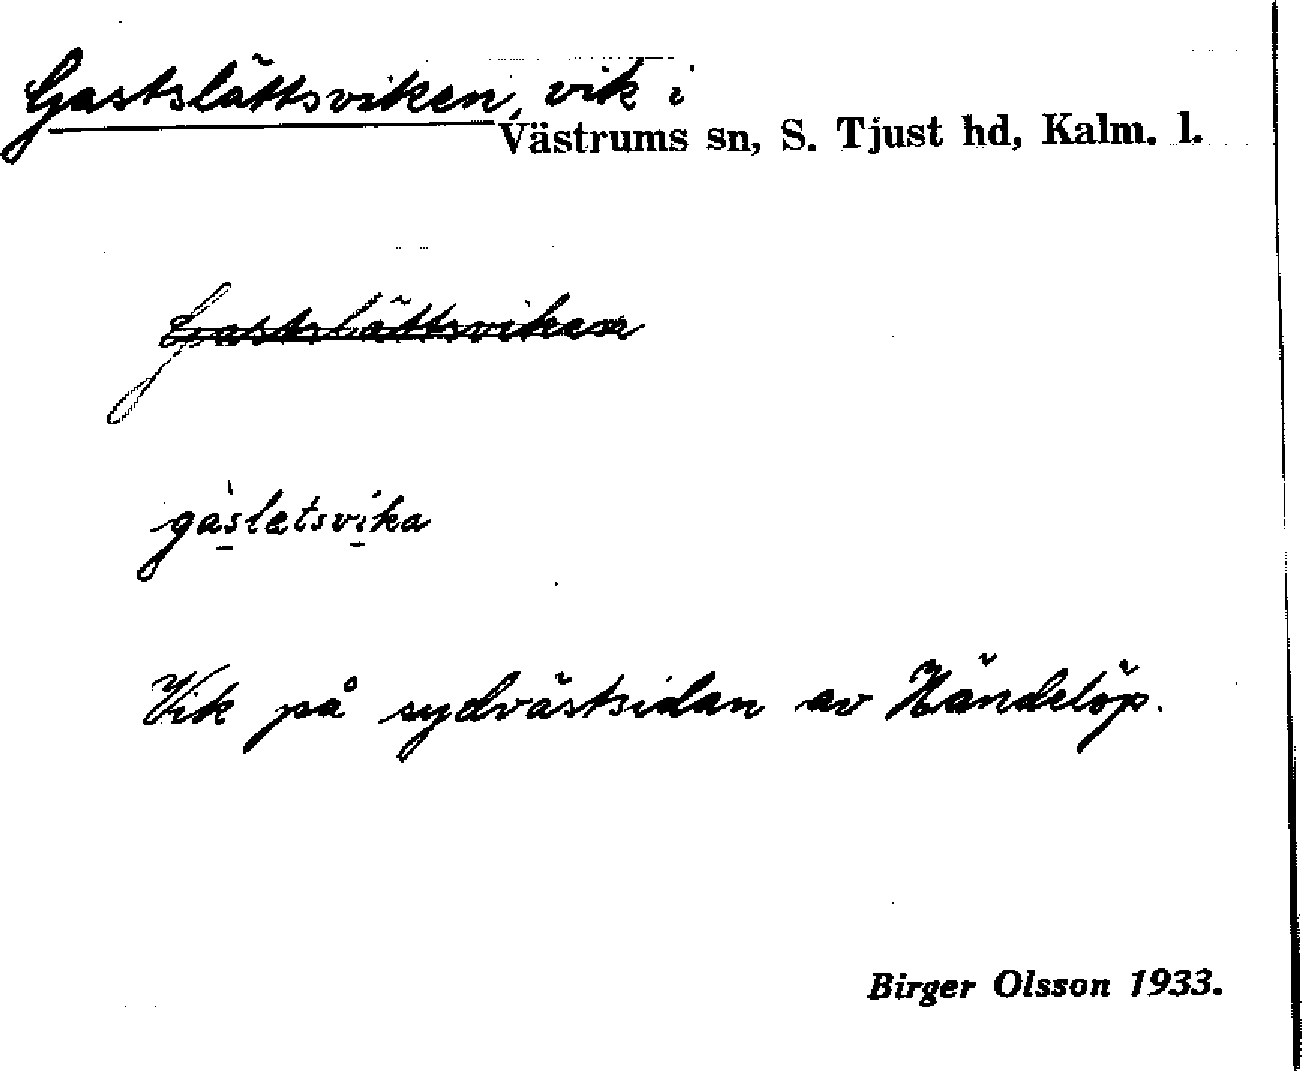 Gastslättsviken, vik i
Västrums sn, S. Tjust hd, Kalm. l.
Gastslättsviken
gàsletsvika
Vik på sydvästsidan av Händelöp.
Birger Olsson 1933.